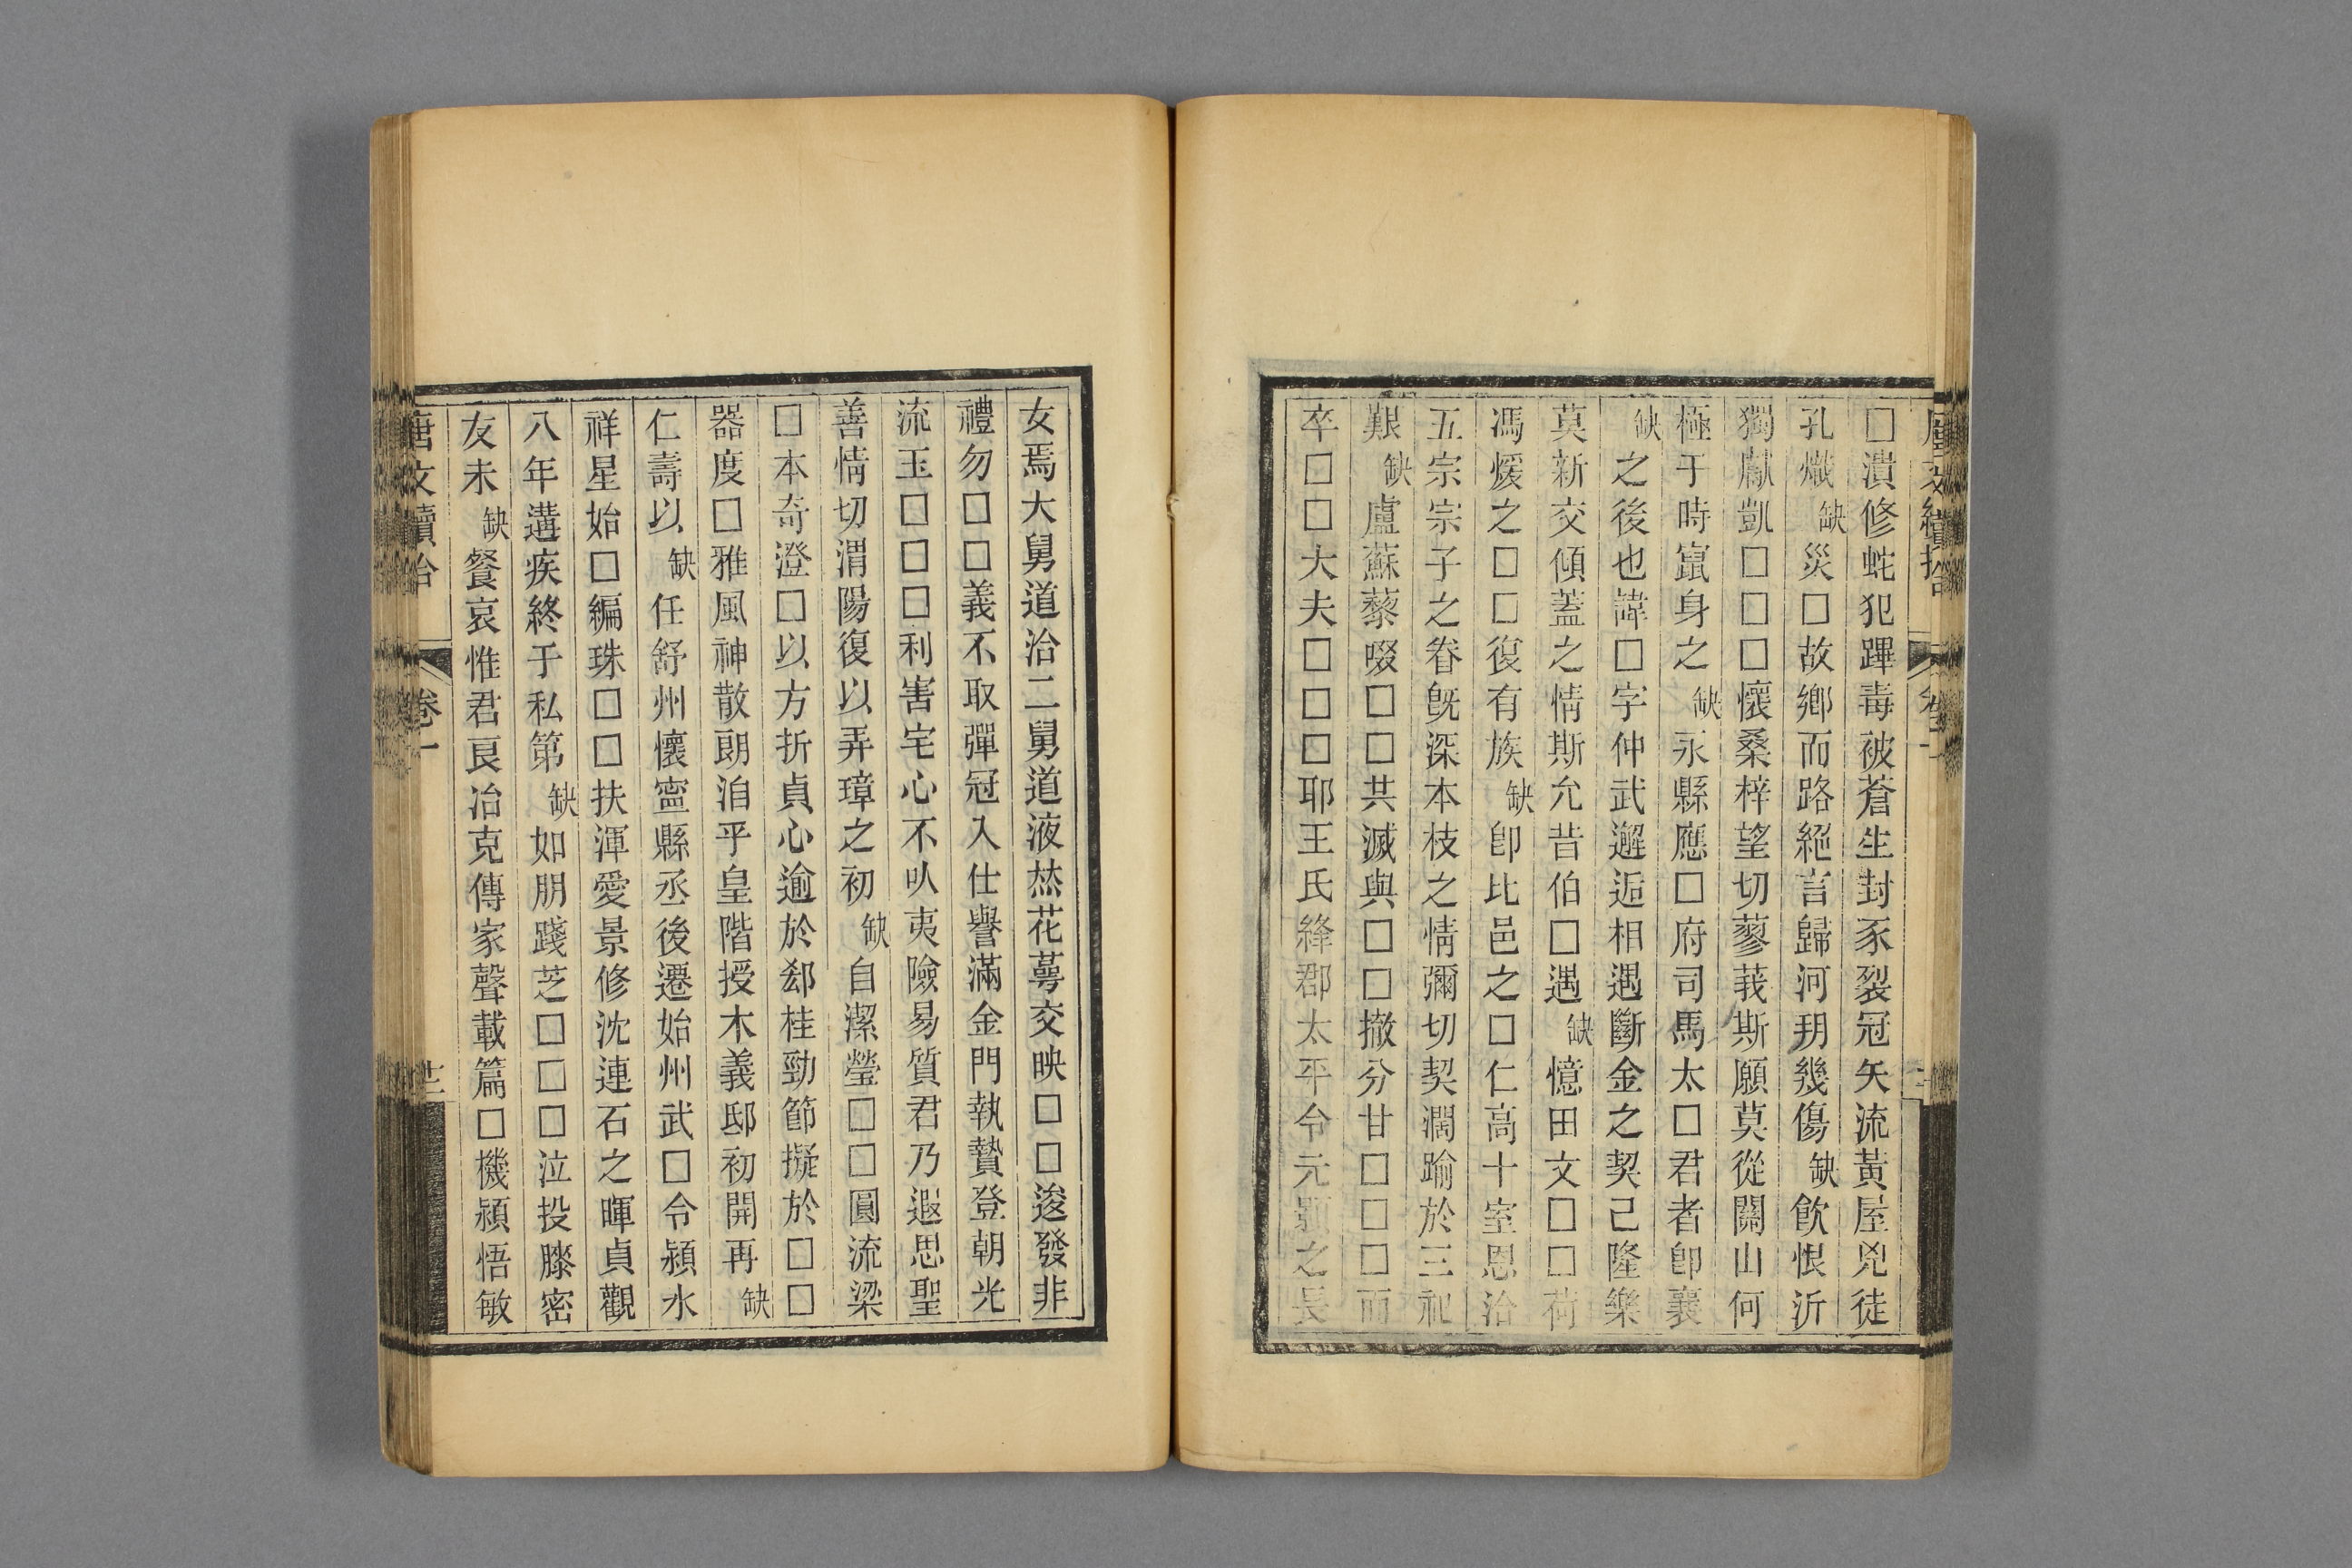 □潰修蛇犯蹕毒被蒼生封豕裂冠矢流黃屋兇徒
孔熾缺災□故鄉而路絕言歸河朔幾傷缺飲恨沂
獨獻凱□□□懷桑梓望切蓼莪斯願莫從關山何
極于時竄身之缺永縣應□府司馬太□君者卽襄
缺之後也諱□字仲武邂逅相遇斷金之契己隆樂
莫新交傾蓋之情斯允昔伯□遇缺憶田文□□荷
馮煖之□□復有族缺卽比邑之□仁高十室恩洽
五宗宗子之眷旣深本枝之情彌切契濶踰於三祀
艱缺盧蘇藜啜□□共滅與□□撤分甘□□□而
卒□□大夫□□□耶王氏絳郡太平令元顥之長
女焉大舅道洽二舅道液㷊花蕚交映□□逡發非
禮勿□□義不取彈冠入仕譽滿金門執贄登朝光
流玉□□□利害宅心不㕥夷險易質君乃遐思聖
善情切渭陽復以弄璋之初缺自潔瑩□□圓流梁
□本奇澄□以方折貞心逾於郄桂勁節擬於□□
器度□雅風神散朗洎乎皇階授木義邸初開再缺
仁壽以缺任舒州懷寧縣丞後遷始州武□令潁水
祥星始□編珠□□扶渾愛景修沈連石之暉貞觀
八年遘疾終于私第缺如朋踐芝□□□泣投膝密
友未缺餐哀惟君艮冶克傳家聲載篇□機潁悟敏
唐文續拾 卷一